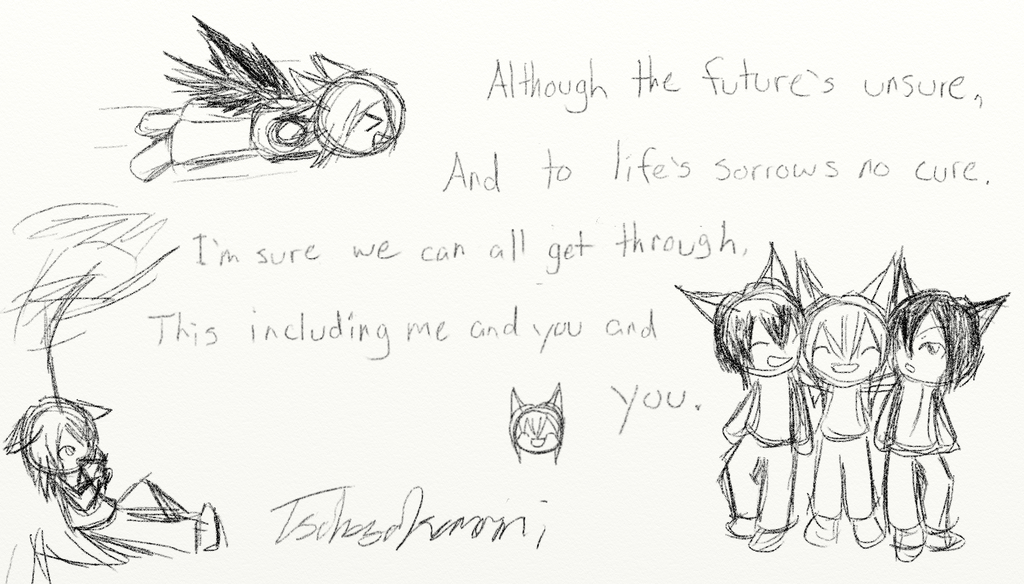 Although the future's unsure,
And to life's sorrows no cure.
I'm sure we can all get through,
This including me and you and
you.